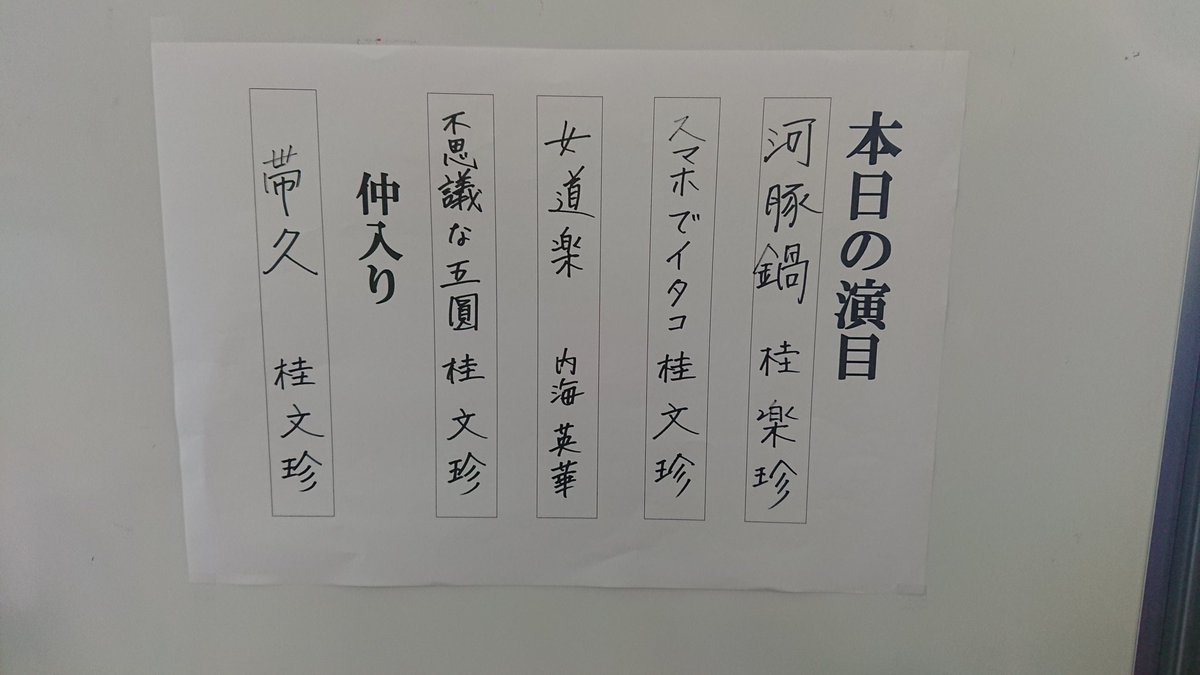 本日の演目
河豚鍋 桂楽珍
スマホでイタコ 桂文珍
女道楽 内海英華
不思議な五圓 桂文珍
仲入り
帯久 桂文珍